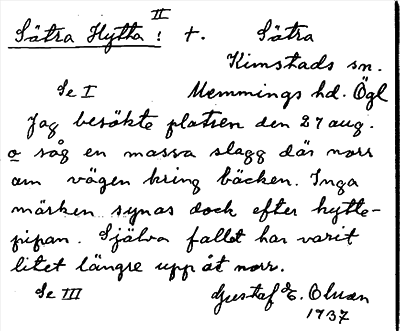 Sätra Hytta II! +. Sätra
Kimstads sn.
Se I Memmings hd. Ögl
Jag besökte platsen den 27 aug.
o såg en massa slagg där norr
om vägen kring bäcken. Inga
märken synas dock efter hytte-
pipan. Själva fallet har varit
litet längre upp åt norr.
Se III Gustaf E. Olson
1937